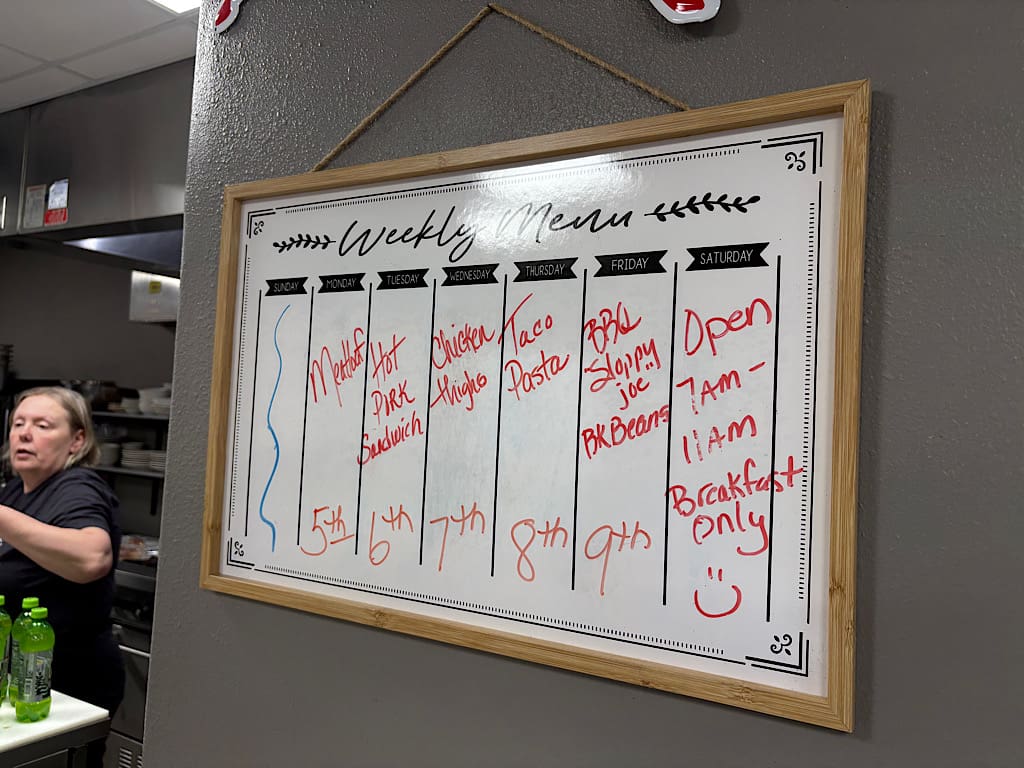 Weekly Menu
SUNDAY
MONDAY
TUESDAY
WEDNESDAY
THURSDAY
FRIDAY
SATURDAY
Meatloaf
5th
Hot
PORK
Sandwich
6th
Chicken
thighs
7th
Taco
Pasta
8th
BBQ
Sloppy
joe
BK Beans
9th
Open
7AM -
11AM
Breakfast
only